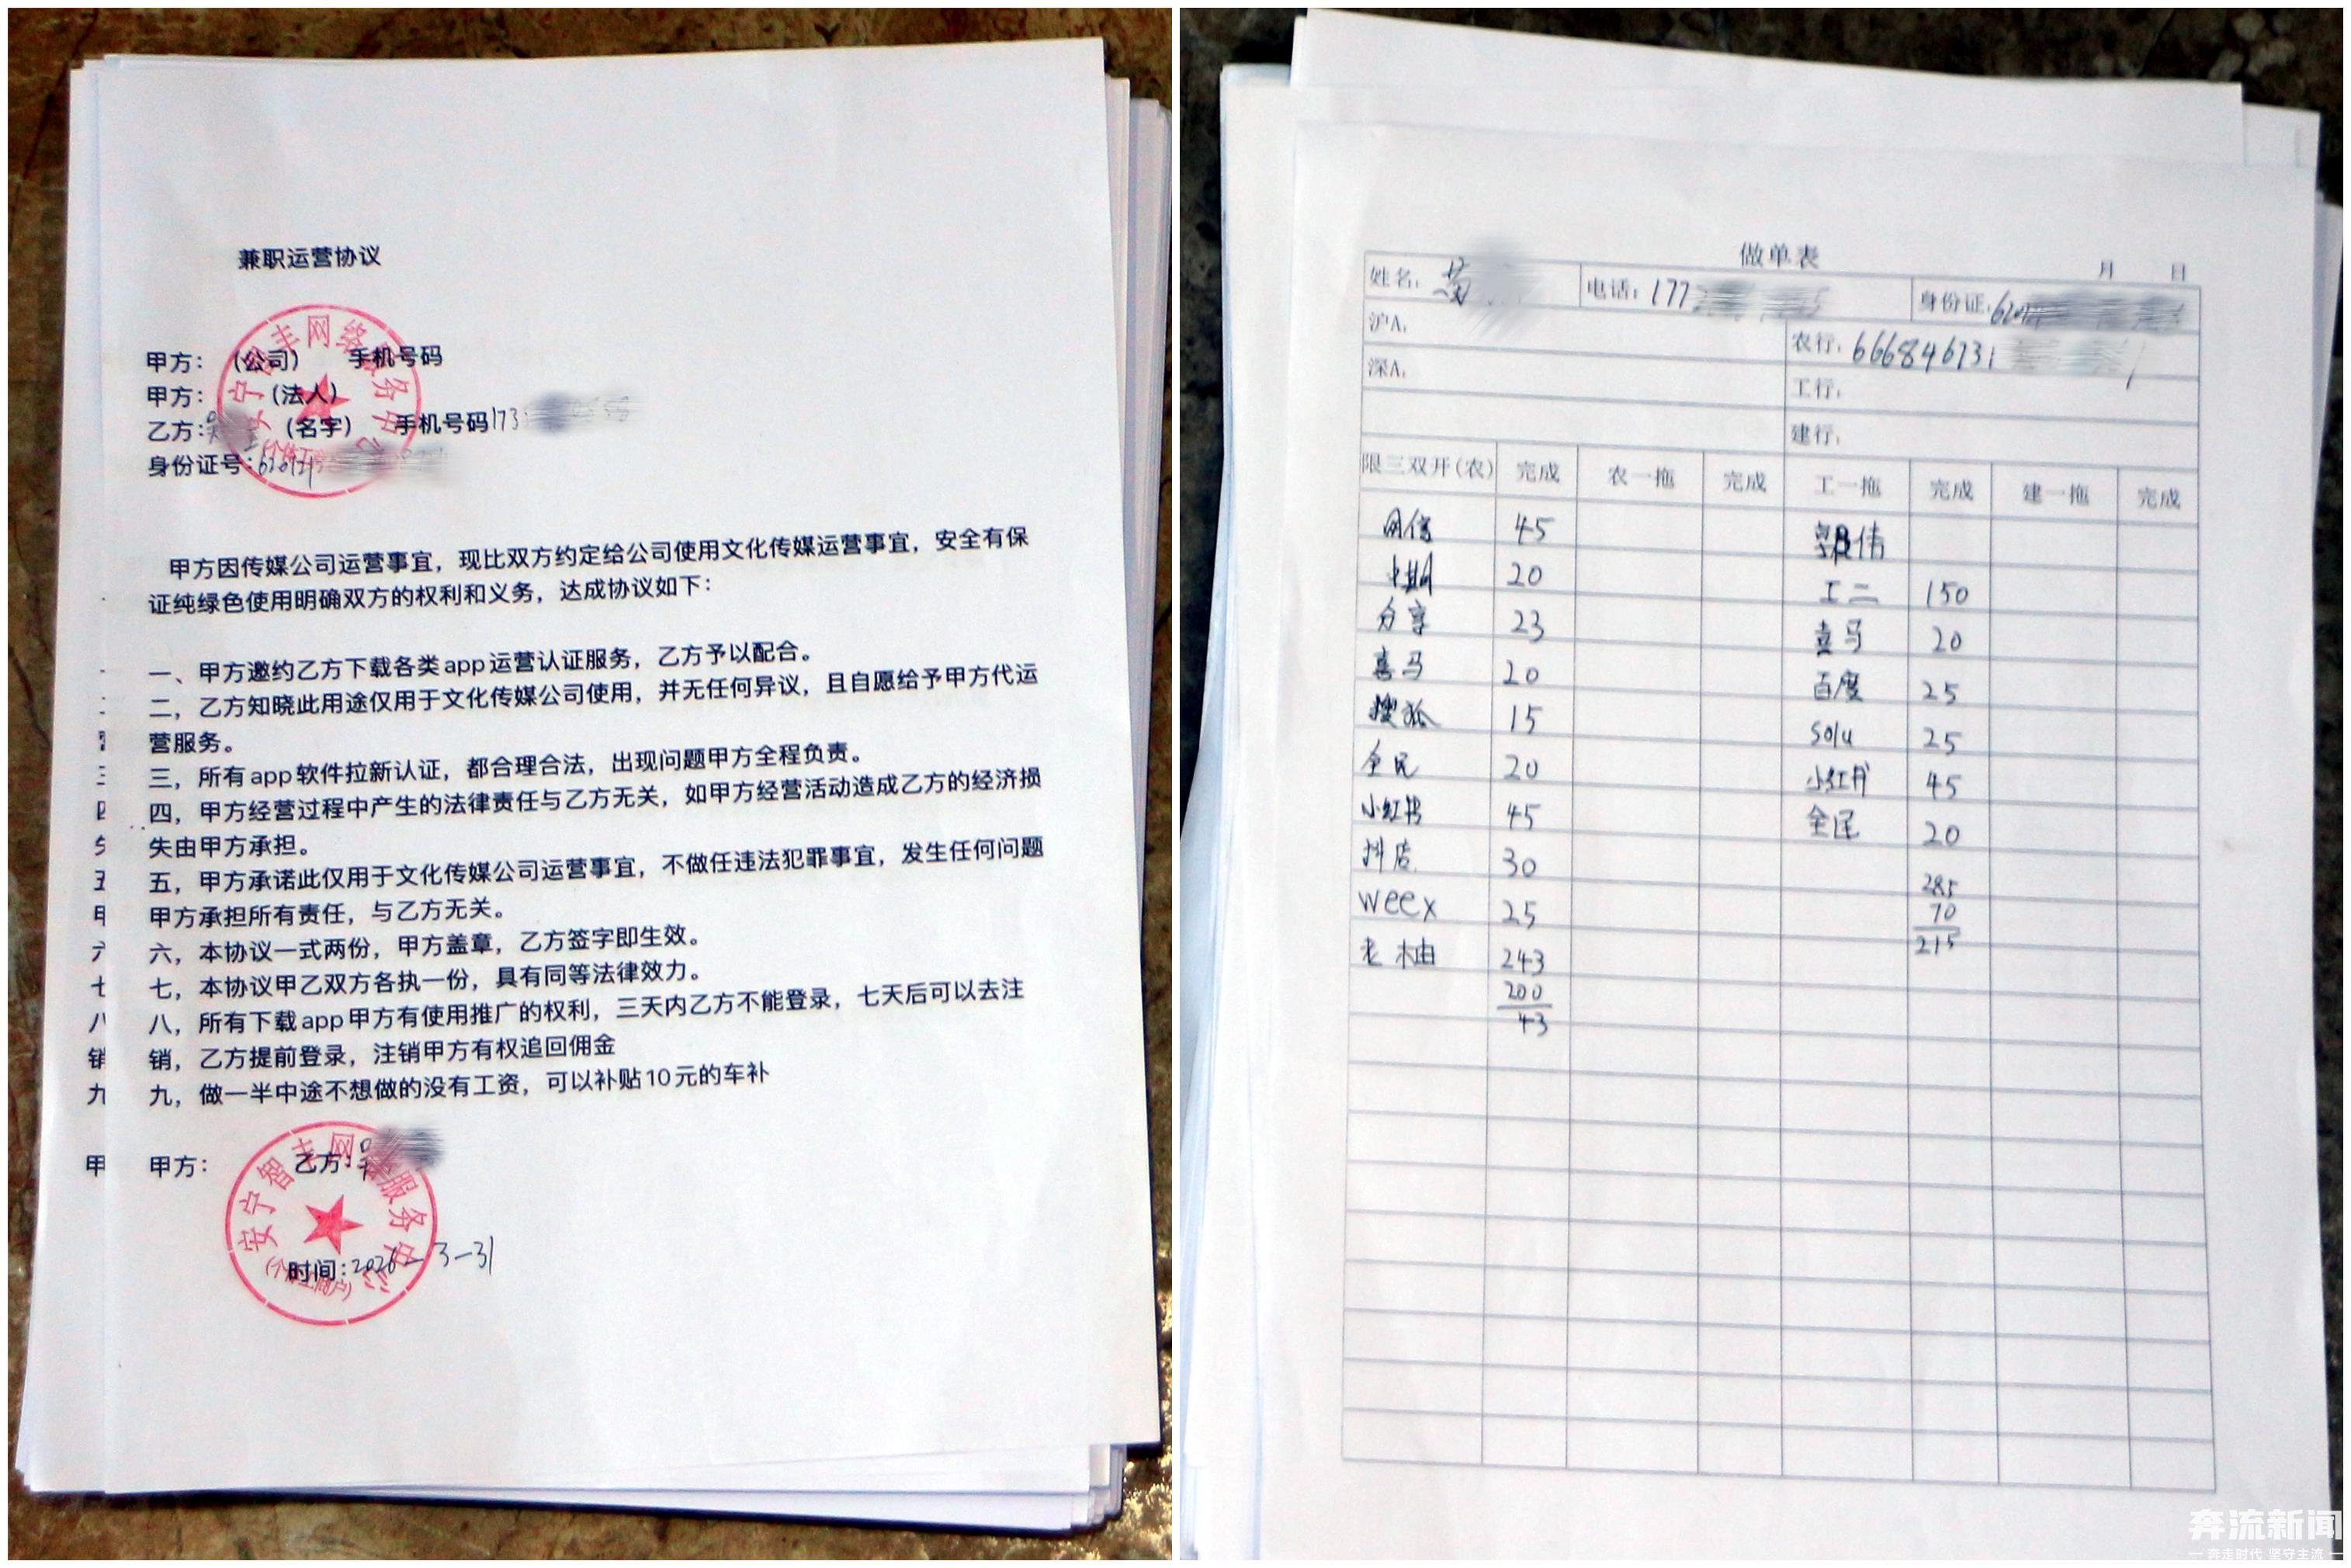 兼职运营协议
甲方： （公司） 手机号码
甲方： （法人）
乙方： （名字） 手机号码173
身份证号：
安宁智丰网络服务中心
甲方因传媒公司运营事宜，现比双方约定给公司使用文化传媒运营事宜，安全有保
证纯绿色使用明确双方的权利和义务，达成协议如下：
一、甲方邀约乙方下载各类app运营认证服务，乙方予以配合。
二，乙方知晓此用途仅用于文化传媒公司使用，并无任何异议，且自愿给予甲方代运
营服务。
三，所有app软件拉新认证，都合理合法，出现问题甲方全程负责。
四，甲方经营过程中产生的法律责任与乙方无关，如甲方经营活动造成乙方的经济损
失由甲方承担。
五，甲方承诺此仅用于文化传媒公司运营事宜，不做任违法犯罪事宜，发生任何问题
甲方承担所有责任，与乙方无关。
六，本协议一式两份，甲方盖章，乙方签字即生效。
七，本协议甲乙双方各执一份，具有同等法律效力。
八，所有下载app甲方有使用推广的权利，三天内乙方不能登录，七天后可以去注
销，乙方提前登录，注销甲方有权追回佣金
九，做一半中途不想做的没有工资，可以补贴10元的车补
甲方： 乙方：
安宁智丰网络服务中心
（个体工商户）
时间：2026-3-31
做单表
月 日
姓名： 电话：177 身份证：620
沪A： 农行：666846731
深A： 工行：
建行：
限三双开（农） 完成 农一拖 完成 工一拖 完成 建一拖 完成
网信 45 郭伟
中期 20 工二 150
分享 23 喜马 20
喜马 20 百度 25
搜狐 15 solu 25
全民 20 小红书 45
小红书 45 全民 20
抖店 30 285
weex 25 70
老柚 243 215
200
43
奔流新闻
奔走时代 坚守主流